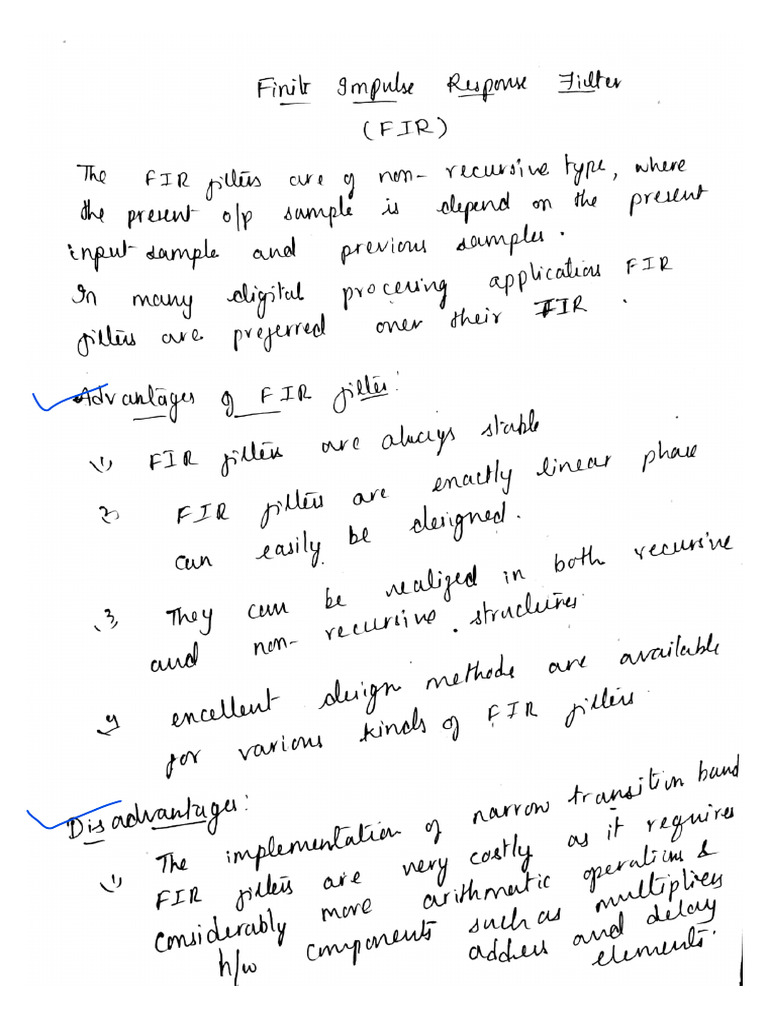 Finite Impulse Response Filter
(FIR)
The FIR filters are of non-recursive type, where
the present o/p sample is depend on the present
input sample and previous samples.
In many digital processing application FIR
filters are preferred over their IIR.
Advantages of FIR filter:
1) FIR filters are always stable
2) FIR filters are exactly linear phase
can easily be designed.
3) They can be realized in both recursive
and non-recursive structures.
4) excellent design methods are available
for various kinds of FIR filters.
Disadvantages:
1) The implementation of narrow transition band
FIR filters are very costly as it requires
considerably more arithmatic operations &
h/w components such as multipliers
adders and delay
elements.